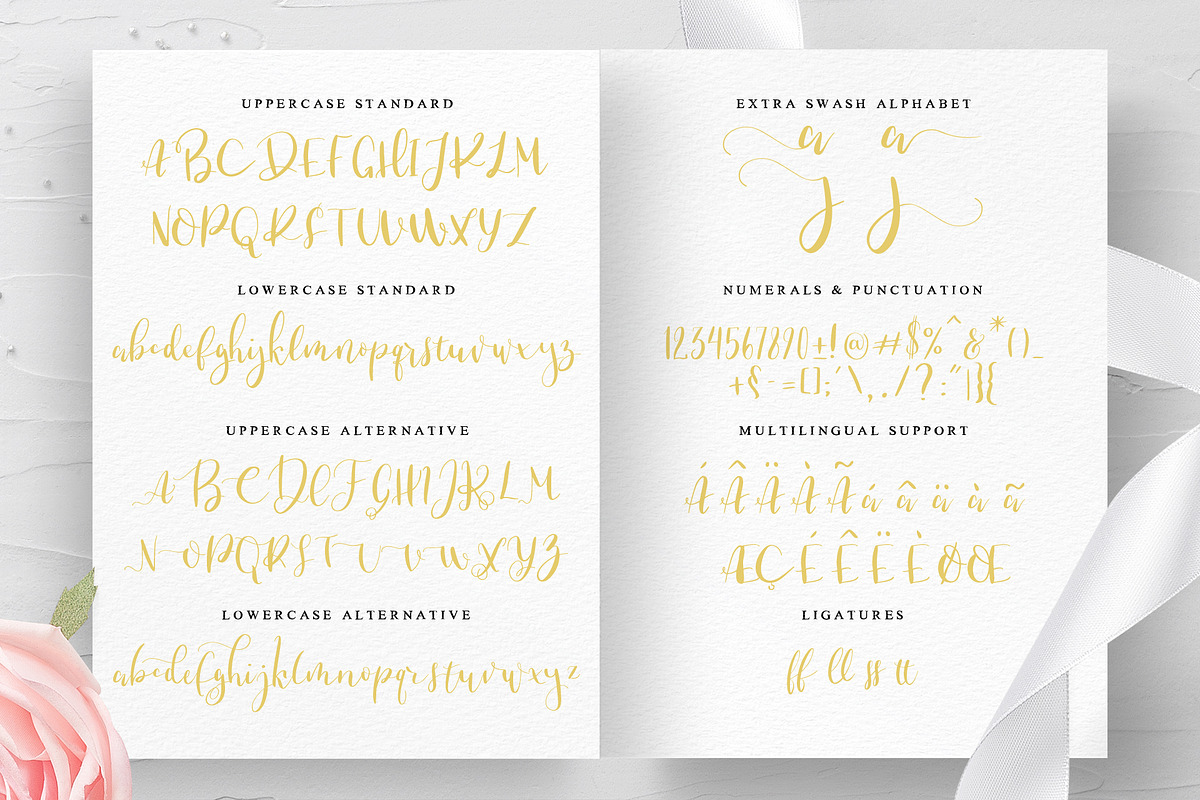 UPPERCASE STANDARD
ABCDEFGHIJKLM
NOPQRSTUVWXYZ
LOWERCASE STANDARD
abcdefghijklmnopqrstuvwxyz
UPPERCASE ALTERNATIVE
ABCDEFGHIJKLM
NOPQRSTUVWXYZ
LOWERCASE ALTERNATIVE
abcdefghijklmnopqrstuvwxyz
EXTRA SWASH ALPHABET
a a
J J
NUMERALS & PUNCTUATION
1234567890±!@#$%^&*()_
+{-=[];'\,./?:"|}{
MULTILINGUAL SUPPORT
ÁÂÄÀÃáâäàã
ÆÇÉÊËÈØŒ
LIGATURES
ff ll ss tt